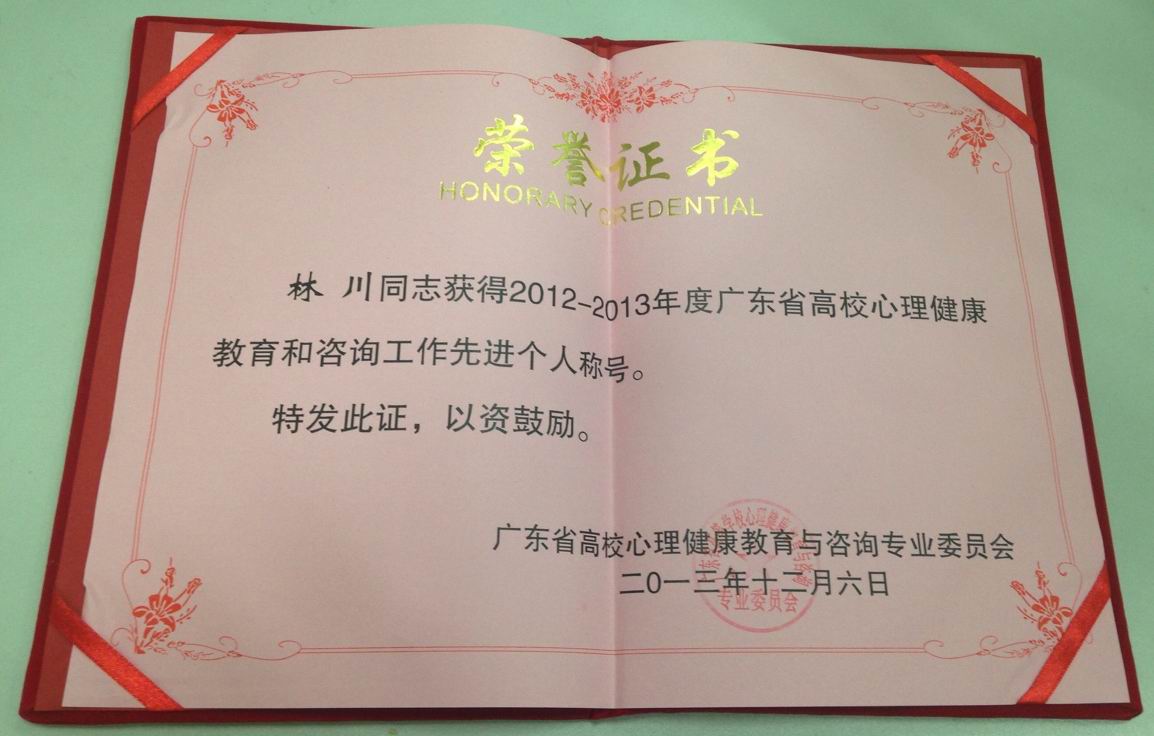 荣誉证书
HONORARY CREDENTIAL
林 川同志获得2012-2013年度广东省高校心理健康
教育和咨询工作先进个人称号。
特发此证，以资鼓励。
广东省高校心理健康教育与咨询专业委员会
二0一三年十二月六日
专业委员会